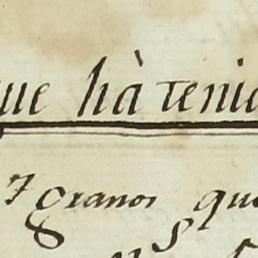 que hà tenid
7 granos que